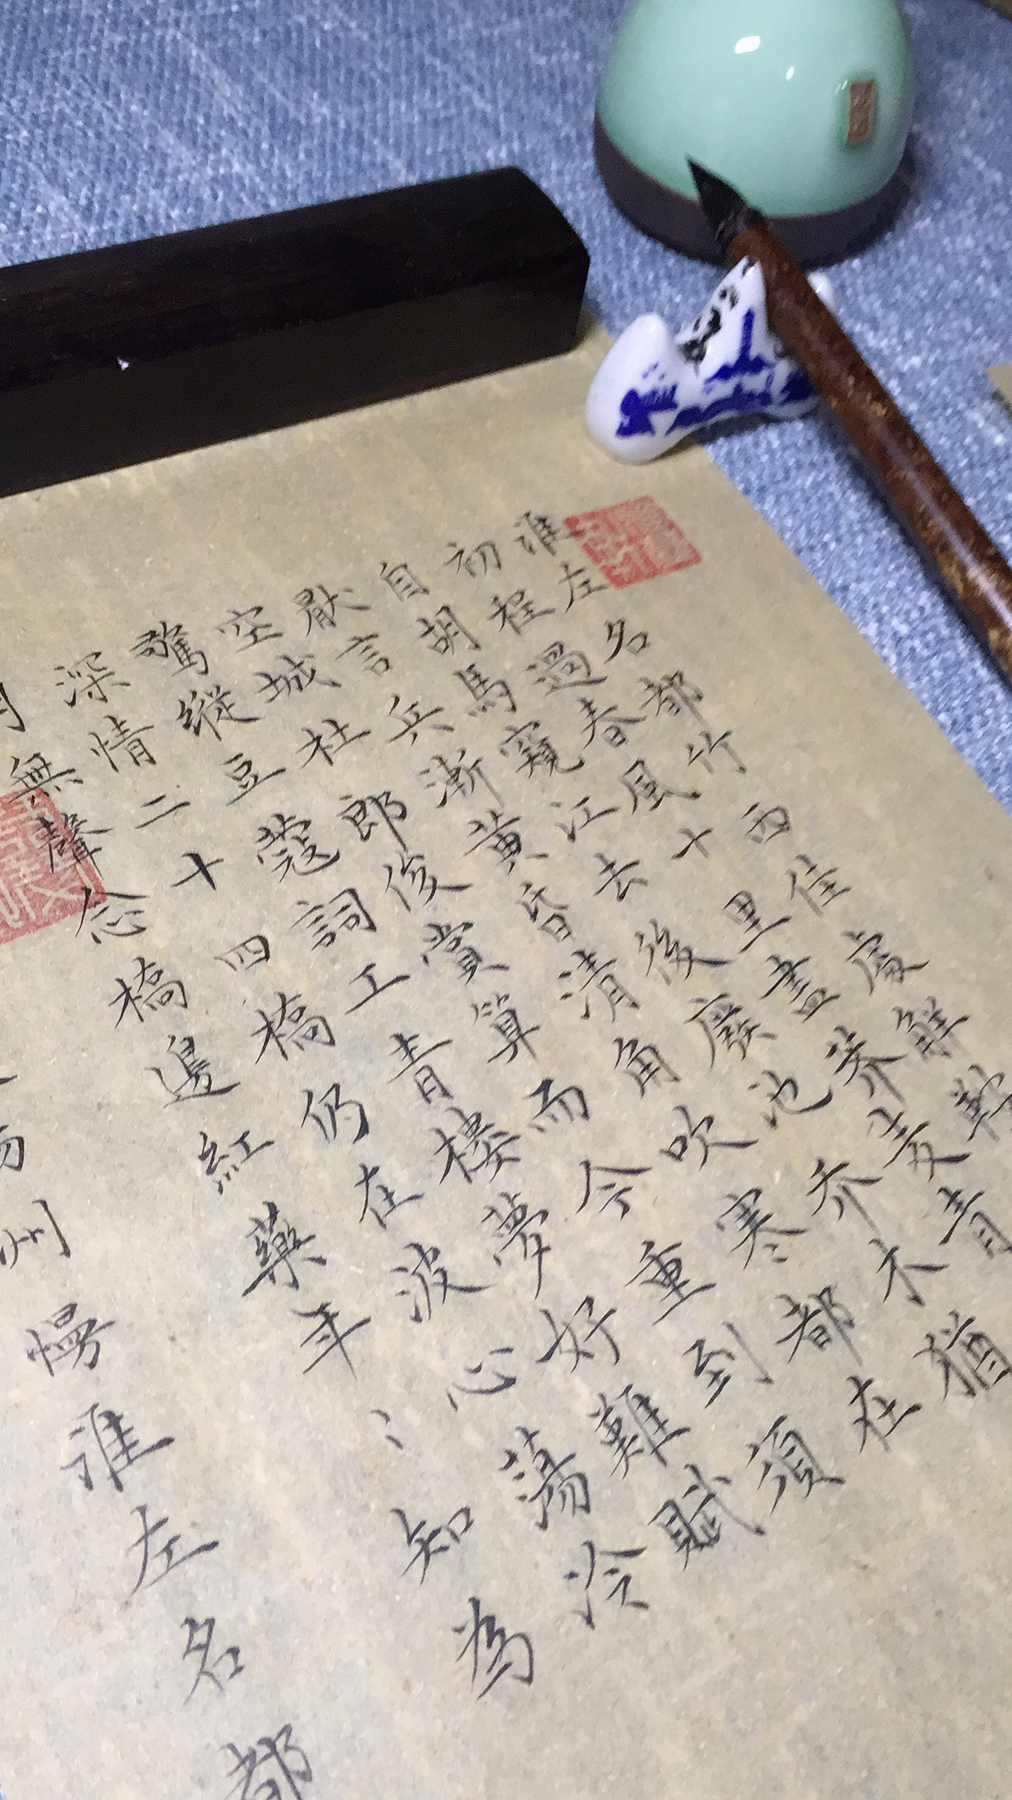 淮左名都竹西佳處解鞍
初程過春風十里盡薺麥青
自胡馬窺江去後廢池喬木猶
厭言兵漸黃昏清角吹寒都在
空城杜郎俊賞算而今重到須
驚縱豆蔻詞工青樓夢好難賦
深情二十四橋仍在波心蕩冷
月無聲念橋邊紅藥年〻知為
州慢淮左名都